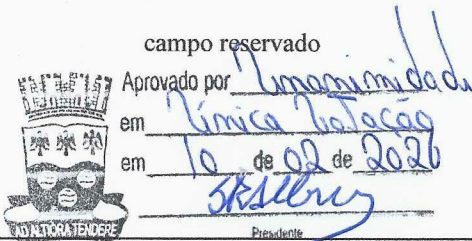 campo reservado
Aprovado por Unanimidade
em Única Votação
em 10 de 02 de 2020
Presidente
AD ALTIORA TENDERE